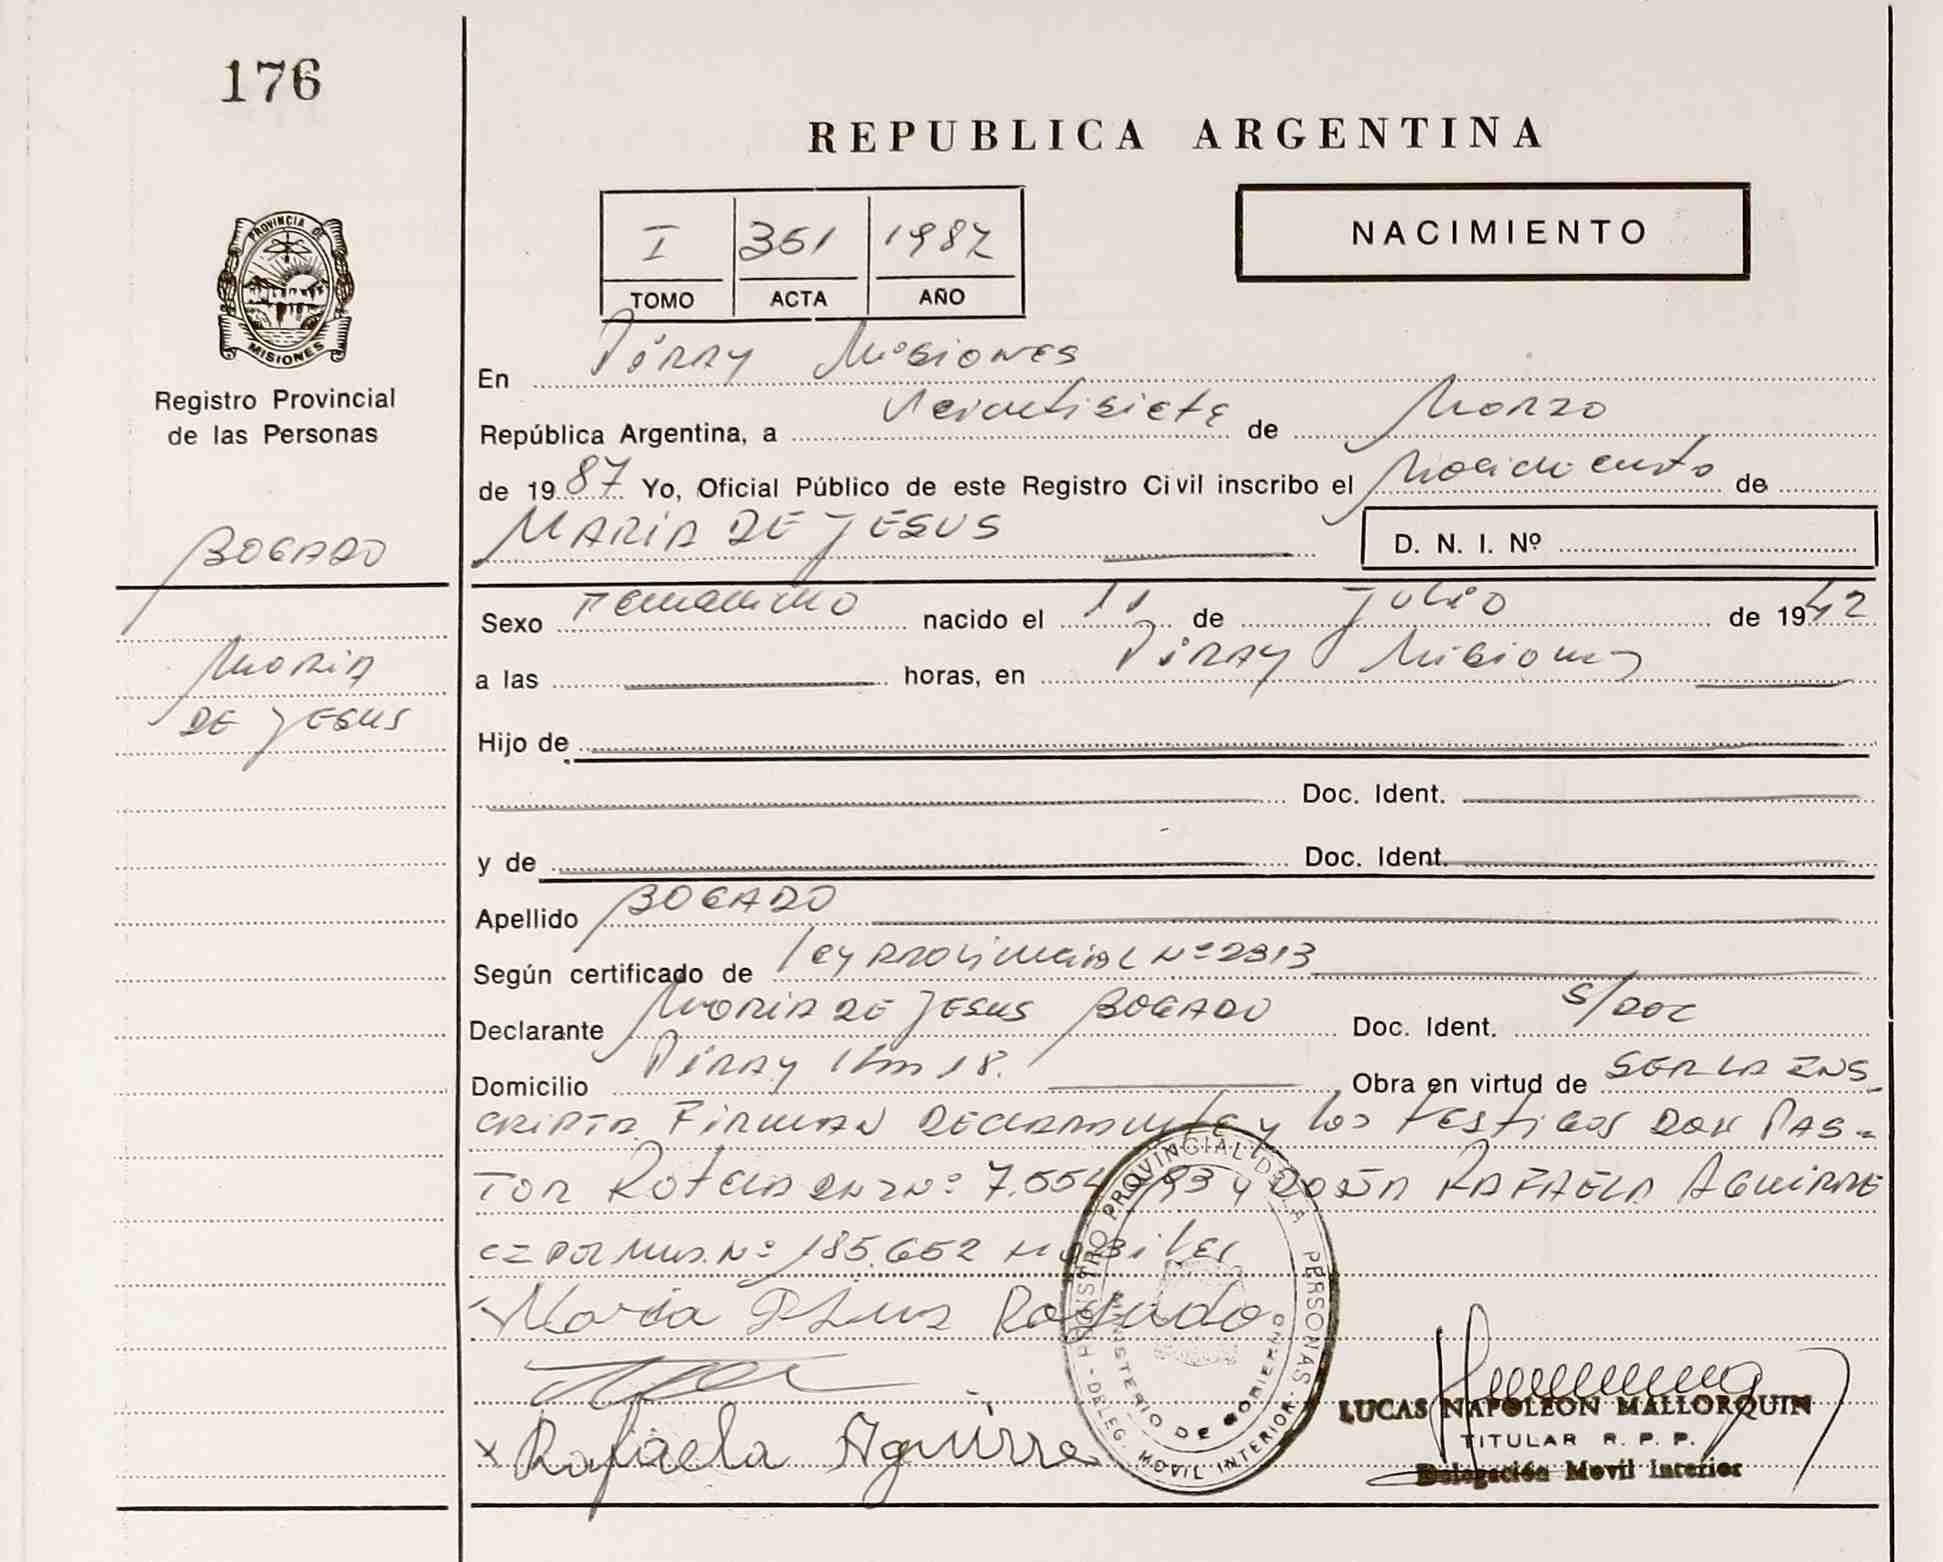 176
REPUBLICA ARGENTINA
I 351 1987
TOMO ACTA AÑO
NACIMIENTO
PROVINCIA DE
MISIONES
Registro Provincial
de las Personas
BOGADO
MARIA
DE JESUS
En Piray Misiones
República Argentina, a Veintisiete de Marzo
de 1987 Yo, Oficial Público de este Registro Civil inscribo el Nacimiento de
MARIA DE JESUS D. N. I. Nº
Sexo Femenino nacido el 11 de Julio de 1942
a las horas, en Piray Misiones
Hijo de
Doc. Ident.
y de Doc. Ident.
Apellido BOGADO
Según certificado de Ley Provincial Nº 2313
Declarante Maria de Jesus Bogado Doc. Ident. S/Doc
Domicilio Piray Km 18. Obra en virtud de SER LA INS-
CRIPTA Firman Declarante y los testigos Don PAS-
TOR Rotela DNI Nº 7.554 193 y Doña RAFAELA AGUIRRE
CI Pol Mis. Nº 185.652 Habiles
Maria Bogado
Rafaela Aguirre
REGISTRO PROVINCIAL DE LA PERSONAS - DELEG. MOVIL INTERIOR -
MINISTERIO DE GOBIERNO
LUCAS NAPOLEON MALLORQUIN
TITULAR R. P. P.
Delegación Movil Interior